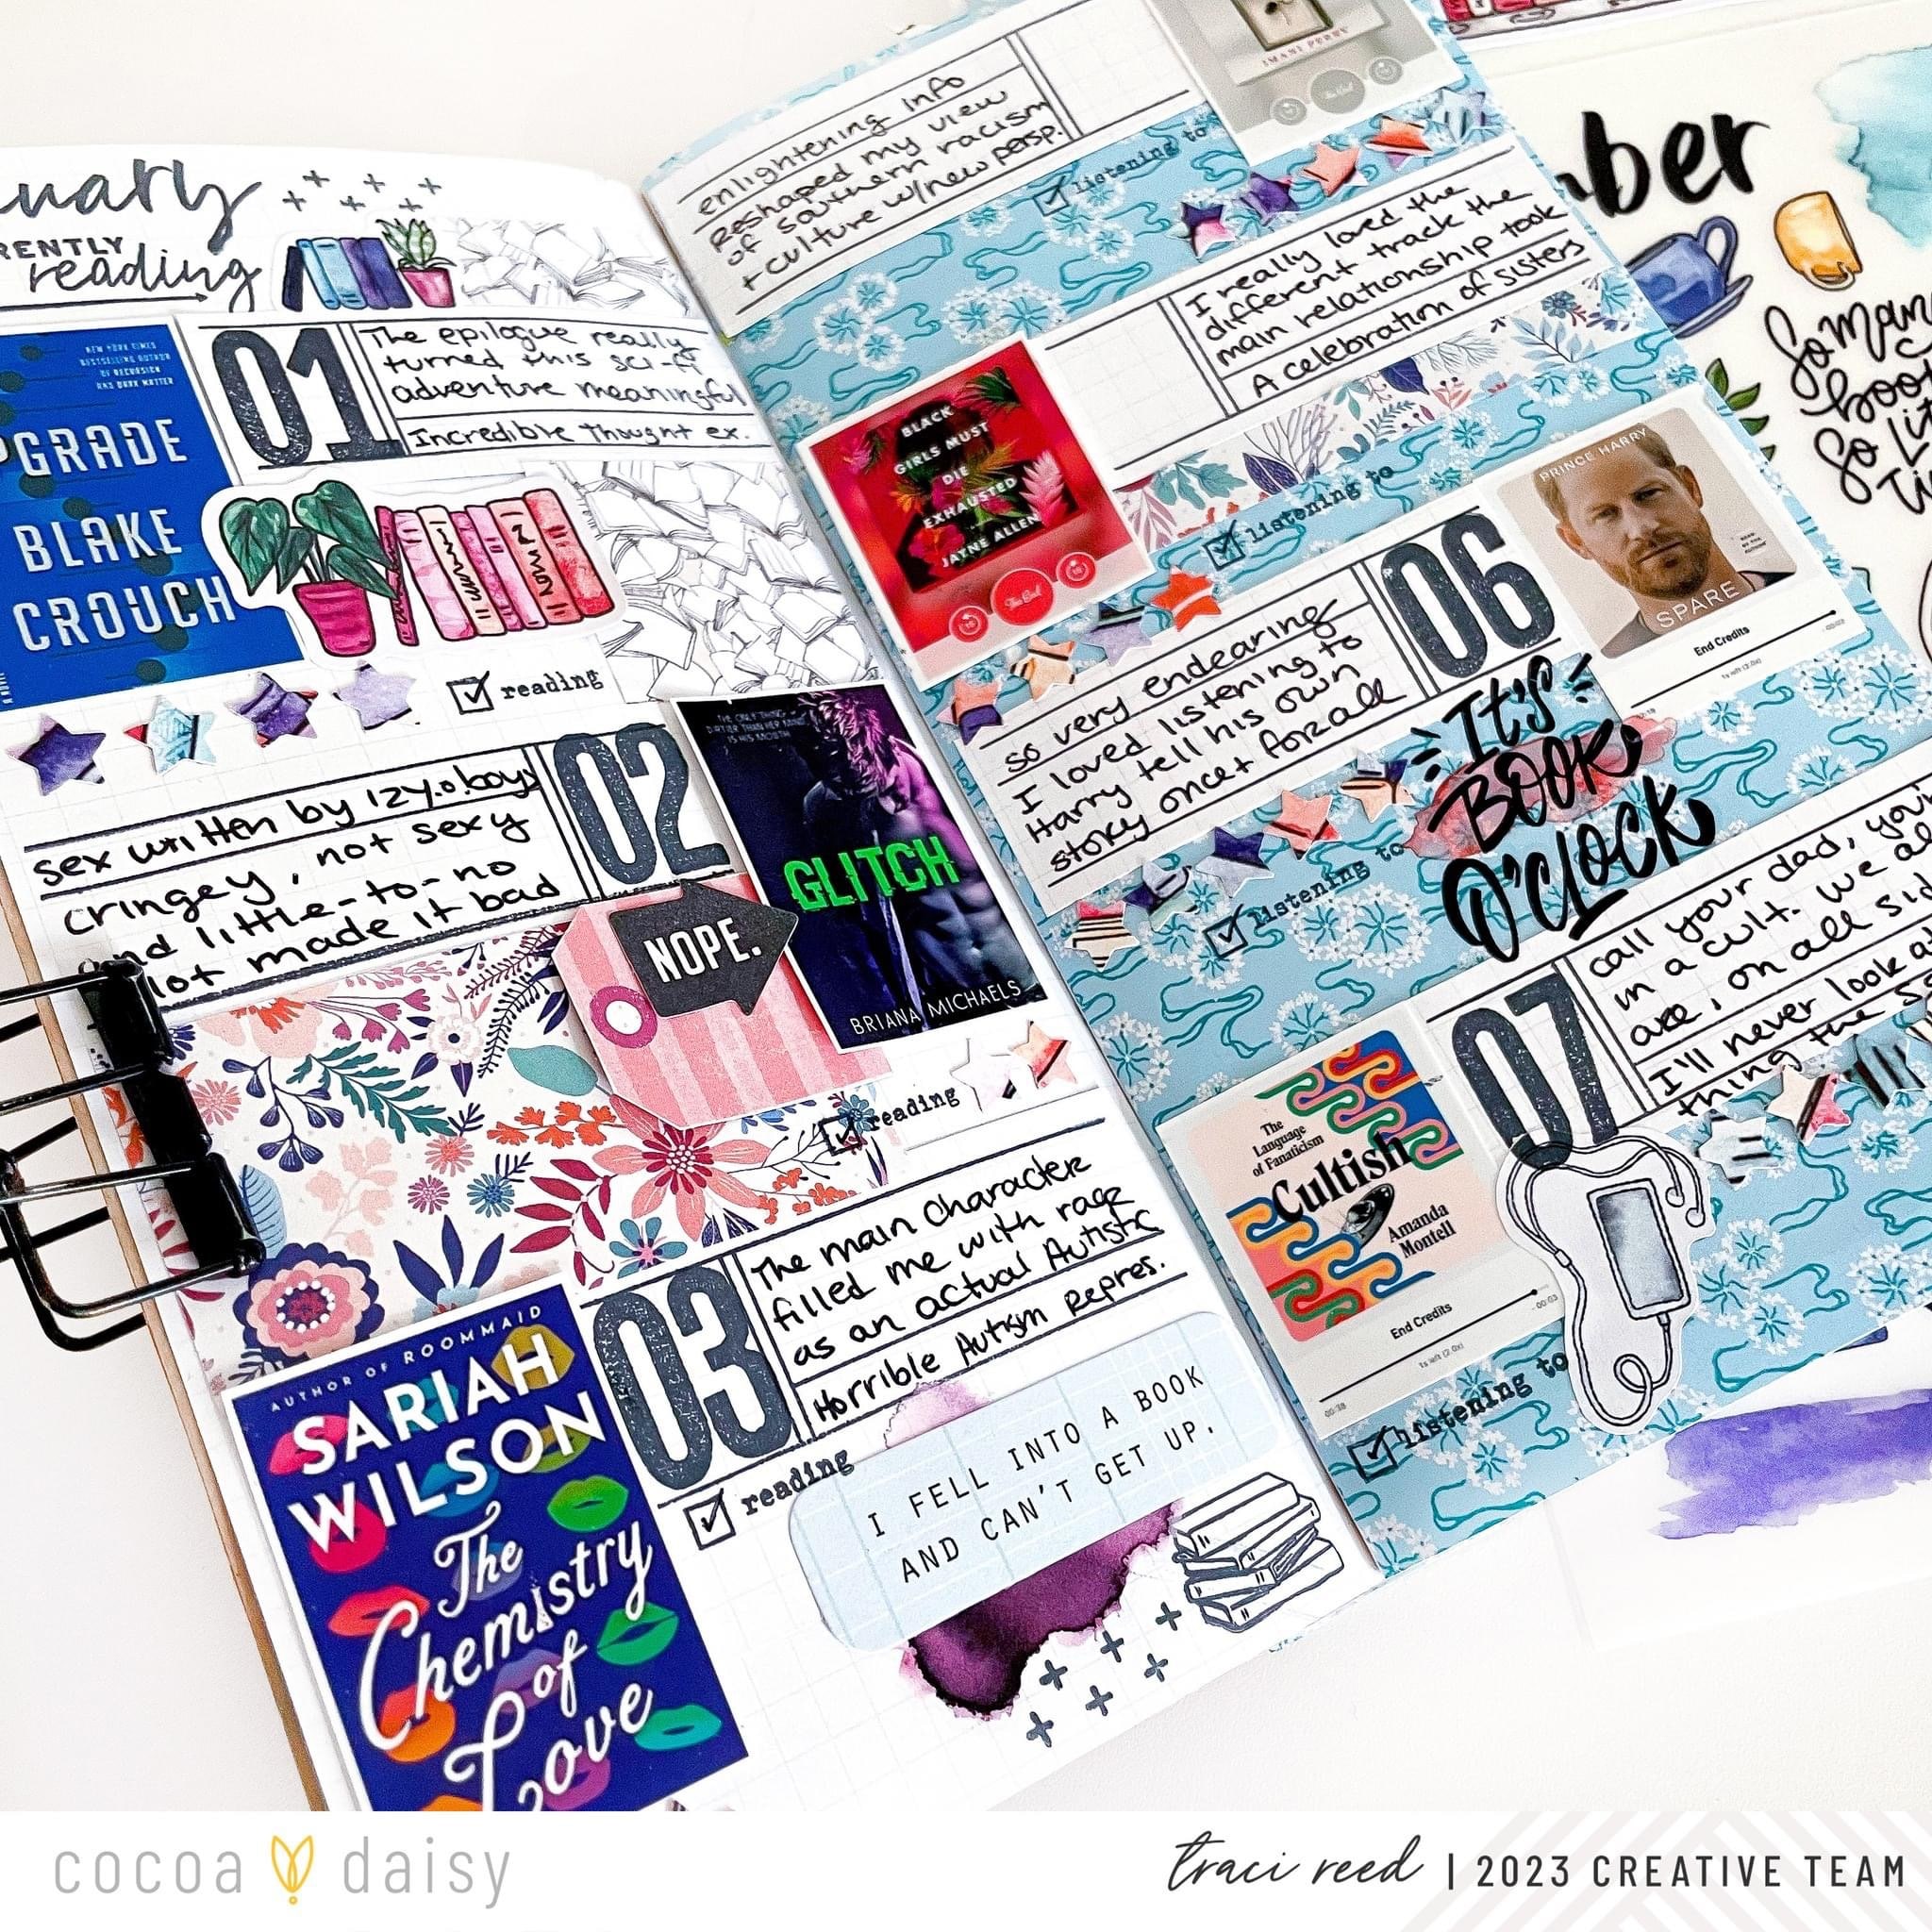 nuary
RENTLY
reading
NEW YORK TIMES
BESTSELLING AUTHOR
OF RECURSION
AND DARK MATTER
PGRADE
BLAKE
CROUCH
01
The epilogue really
turned this sci-fi
adventure meaningful
Incredible thought ex.
reading
sex written by 12y.o.boys
cringey, not sexy
nd little-to-no
lot made it bad
02
THE ONLY THING
DIRTIER THAN HER MIND
IS HIS MOUTH
GLITCH
BRIANA MICHAELS
NOPE.
reading
03
The main character
filled me with rage
as an actual Autistic
Horrible Autism Repres.
reading
AUTHOR OF ROOMMAID
SARIAH
WILSON
The
Chemistry
of
Love
I FELL INTO A BOOK
AND CAN'T GET UP.
IMANI PERRY
The End
enlightening info
Reshaped my view
of southern racism
+ culture w/new persp.
listening to
I really loved the
different track the
main relationship took
A celebration of sisters
BLACK
GIRLS MUST
DIE
EXHAUSTED
JAYNE ALLEN
The End
listening to
so very endearing
I loved listening to
Harry tell his own
story once + for all
06
PRINCE HARRY
SPARE
End Credits
listening to
IT'S
BOOK
O'CLOCK
07
call your dad, you
in a cult. we al
are, on all si
I'll never look a
thing the s
The
Language
of Fanaticism
Cultish
Amanda
Montell
End Credits
00:38
-00:03
1s left (2.0x)
listening to
ber
So man
boo
So li
So
Ti
cocoa daisy
traci reed | 2023 CREATIVE TEAM